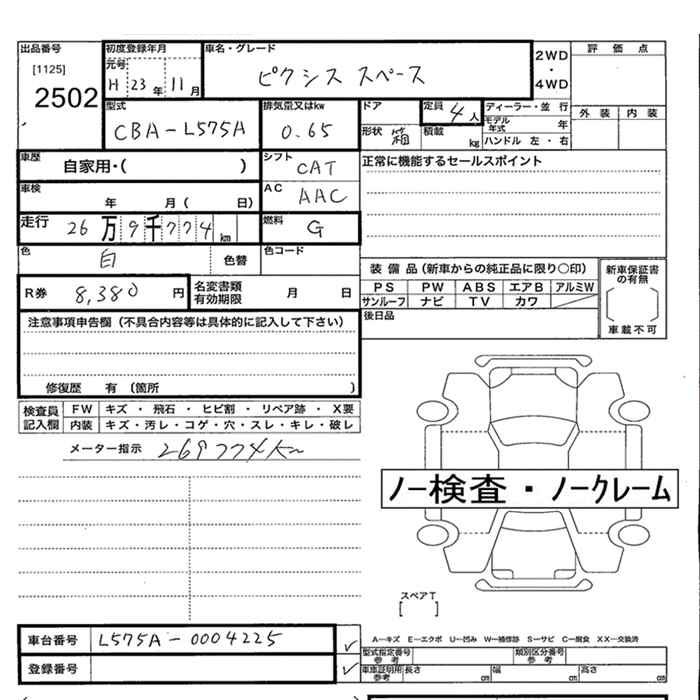 出品番号
[1125]
2502
初度登録年月
元号
H 23年 11月
車名・グレード
ピクシス スペース
2WD
・
4WD
評 価 点
外 装 内 装
型式
CBA-L575A
排気量又はkw
0.65
ドア
形状 箱
定員
4人
積載 kg
ディーラー・並 行
モデル年式 年
ハンドル 左・右
車歴
自家用・( )
シフト
CAT
正常に機能するセールスポイント
車検
年 月( 日)
AC
AAC
走行
26万9千774km
燃料
G
色
白
色替
色コード
装 備 品 (新車からの純正品に限り○印)
PS PW ABS エアB アルミW
サンルーフ ナビ TV カワ
新車保証書の有無
車載不可
R券
8,380円
名変書類有効期限 月 日
後日品
注意事項申告欄(不具合内容等は具体的に記入して下さい)
修復歴 有 (箇所 )
検査員記入欄
FW キズ ・ 飛石 ・ ヒビ割 ・ リペア跡 ・ X要
内装 キズ・汚レ・コゲ・穴・スレ・キレ・破レ
メーター指示 269774Km
ノー検査・ノークレーム
スペアT
[ ]
車台番号 L575A-0004225
登録番号
A―キズ E―エクボ U―凹み W―補修跡 S―サビ C―腐食 XX―交換済
型式指定番号 参考
類別区分番号 参考
車庫証明用 参考
長さ cm 幅 cm 高さ cm